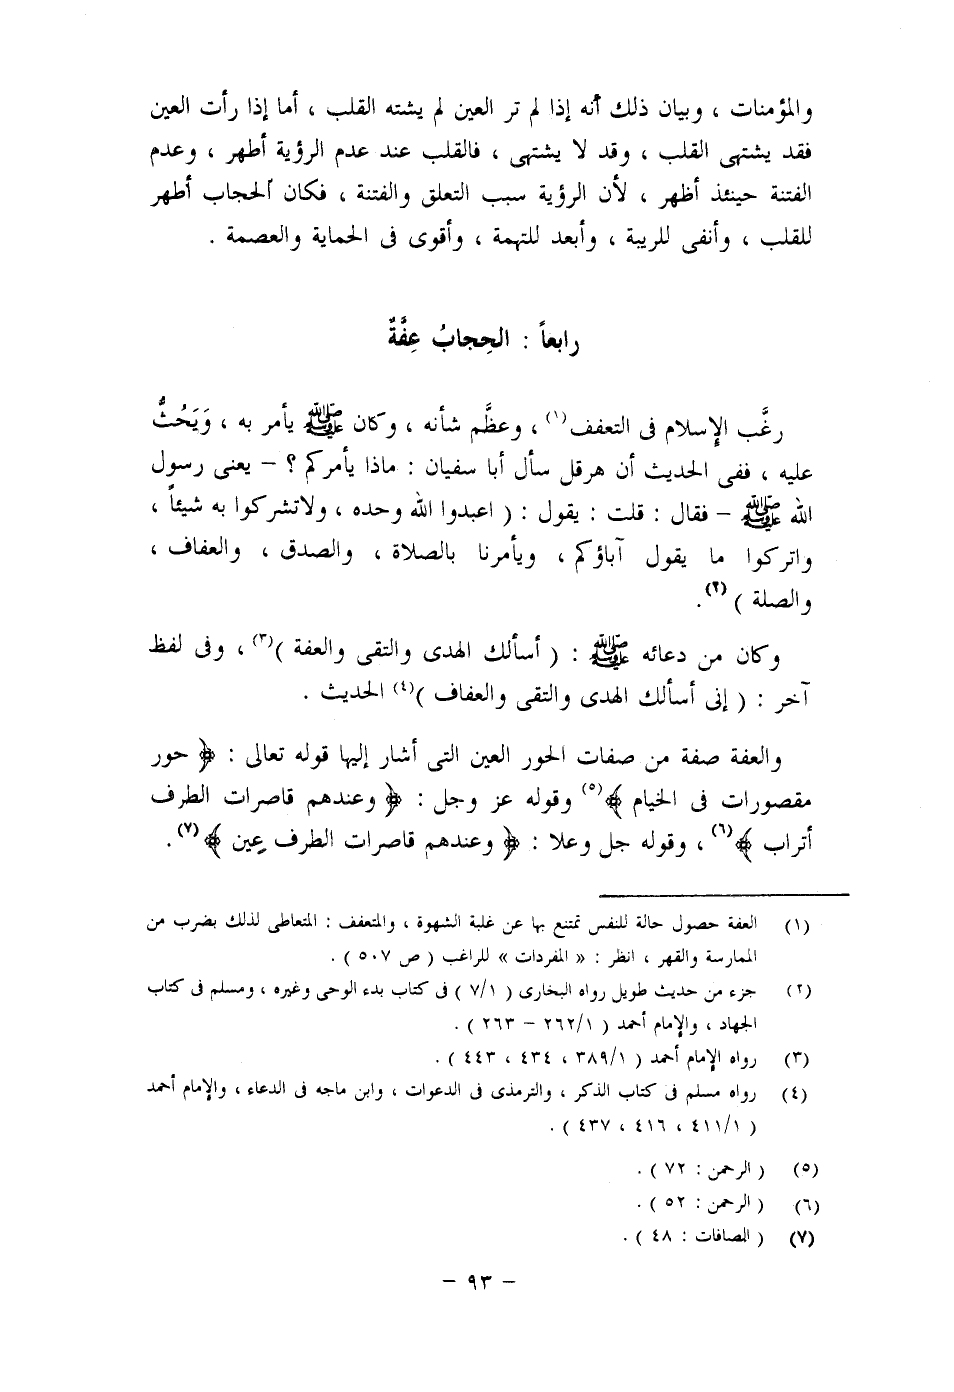 والمؤمنات ، وبيان ذلك أنه إذا لم تر العين لم يشته القلب ، أما إذا رأت العين
فقد يشتهى القلب ، وقد لا يشتهى ، فالقلب عند عدم الرؤية أطهر ، وعدم
الفتنة حينئذ أظهر ، لأن الرؤية سبب التعلق والفتنة ، فكان الحجاب أطهر
للقلب ، وأنفى للريبة ، وأبعد للتهمة ، وأقوى فى الحماية والعصمة .
رابعاً : الحِجابُ عِفَّةٌ
رغَّب الإسلام فى التعفف(١) ، وعظَّم شأنه ، وكان ﷺ يأمر به ، وَيَحُثُّ
عليه ، ففى الحديث أن هرقل سأل أبا سفيان : ماذا يأمركم ؟ – يعنى رسول
الله ﷺ – فقال : قلت : يقول : ( اعبدوا الله وحده ، ولاتشركوا به شيئاً ،
واتركوا ما يقول آباؤكم ، ويأمرنا بالصلاة ، والصدق ، والعفاف ،
والصلة )(٢).
وكان من دعائه ﷺ : ( أسألك الهدى والتقى والعفة )(٣) ، وفى لفظ
آخر : ( إنى أسألك الهدى والتقى والعفاف )(٤) الحديث .
والعفة صفة من صفات الحور العين التى أشار إليها قوله تعالى : ﴿ حور
مقصورات فى الخيام ﴾(٥) وقوله عز وجل : ﴿ وعندهم قاصرات الطرف
أتراب ﴾(٦) ، وقوله جل وعلا : ﴿ وعندهم قاصرات الطرف عِين ﴾(٧).
(١) العفة حصول حالة للنفس تمتنع بها عن غلبة الشهوة ، والمتعفف : المتعاطى لذلك بضرب من
الممارسة والقهر ، انظر : « المفردات » للراغب ( ص ٥٠٧ ) .
(٢) جزء من حديث طويل رواه البخارى ( ٧/١ ) فى كتاب بدء الوحى وغيره ، ومسلم فى كتاب
الجهاد ، والإمام أحمد ( ٢٦٢/١ – ٢٦٣ ) .
(٣) رواه الإمام أحمد ( ٣٨٩/١ ، ٤٣٤ ، ٤٤٣ ) .
(٤) رواه مسلم فى كتاب الذكر ، والترمذى فى الدعوات ، وابن ماجه فى الدعاء ، والإمام أحمد
( ٤١١/١ ، ٤١٦ ، ٤٣٧ ) .
(٥) ( الرحمن : ٧٢ ) .
(٦) ( الرحمن : ٥٢ ) .
(٧) ( الصافات : ٤٨ ) .
– ٩٣ –